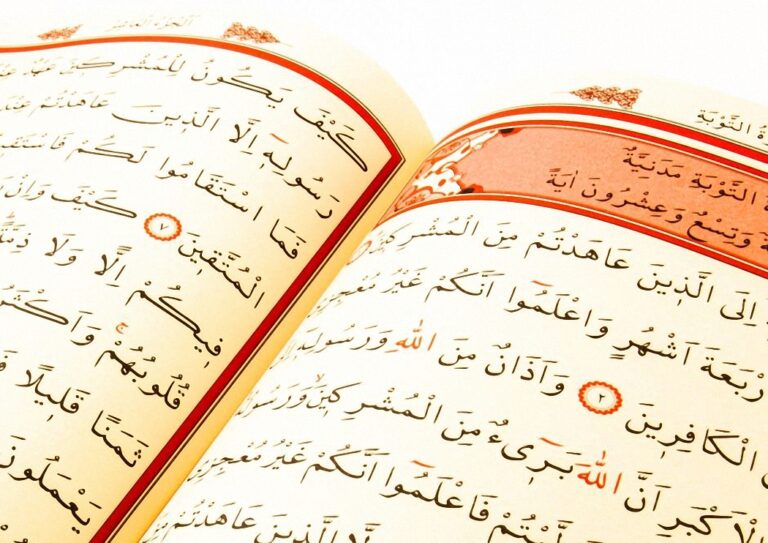 ةُ التَّوْبَةِ
ةُ التَّوْبَةِ مَدَنِيَّةٌ
وَتِسْعٌ وَعِشْرُونَ اٰيَةً
اِلَى الَّذِينَ عَاهَدْتُمْ مِنَ الْمُشْرِكِينَ
رْبَعَةَ اَشْهُرٍ وَاعْلَمُٓوا اَنَّكُمْ غَيْرُ مُعْجِزِي
الْكَافِرِينَ ٢ وَاَذَانٌ مِنَ اللّٰهِ وَرَسُولِهِٓ
الْاَكْبَرِ اَنَّ اللّٰهَ بَرِٓيءٌ مِنَ الْمُشْرِكِينَ وَرَسُولُهُ
لَّيْتُمْ فَاعْلَمُٓوا اَنَّكُمْ غَيْرُ مُعْجِزِي
الَّذِينَ عَاهَدْتُمْ
الجزء العاشر
كَيْفَ يَكُونُ لِلْمُشْرِكِينَ عَهْدٌ عِنْدَ
رَسُولِهِٓ اِلَّا الَّذِينَ عَاهَدْتُمْ عِنْدَ
فَمَا اسْتَقَامُوا لَكُمْ فَاسْتَقِيمُ
الْمُتَّقِينَ ٧ كَيْفَ وَاِنْ
فِيكُمْ اِلًّا وَلَا ذِمَّةً
قُلُوبُهُمْ وَاَكْثَرُ
ثَمَنًا قَلِيلًا
يَعْمَلُونَ